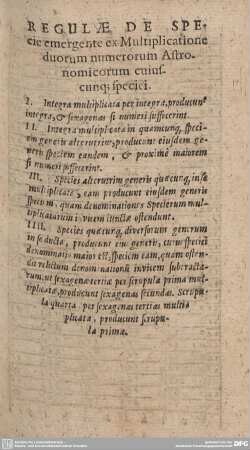 REGVLÆ DE SPE-
cie emergente ex Multiplicatione
duorum numerorum Astro-
nomicorum cuius-
cunq; speciei.
I. Integra multiplicata per integra, producunt
integra, & sexagenas si numeri suffecerint
II. Integra multiplicata in quamcunq, speci-
em generis alterutrius, producunt eiusdem ge-
neris speciem eandem, & proximè maiorem
si numeri suffecerint.
III. Species alterutrius generis quæcunq, in se
multiplicatæ, eam producunt eiusdem generis
speciem, quam denominationes Specierum mul-
tiplicatorum iunctæ ostendunt.
IIII. Species quæcunq, diversorum generum
in se ductæ, producunt eius generis, cuius speciei
denominatio maior est, speciem eam, quam osten-
dit relictum denominationis invicem subtracta-
rum, ut sexagenæ tertiæ per scrupula prima mul-
tiplicatæ, producunt sexagenas secundas. Scrupu-
la quarta, per sexagenas tertias multi-
plicata, producunt scrupu-
la prima.